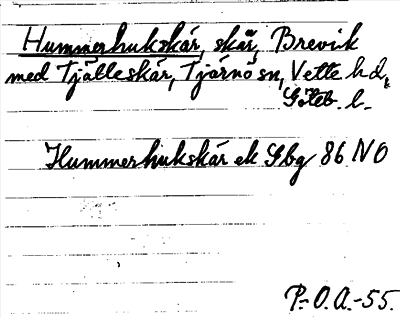 Hummerhukskär, skär, Brevik
med Tjälleskär, Tjärnö sn, Vette hd,
Göteb. l.
Hummerhukskär ek Sbg 86 NO
P.-O.A.-55.